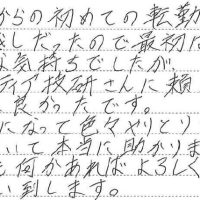 からの初めての転勤
感じだったので最初に
な気持ちでしたが
ティア技研さんに頼
良かったです。
になって色々やりとり
いて本当に助かりま
も何かあればよろしく
い到します。